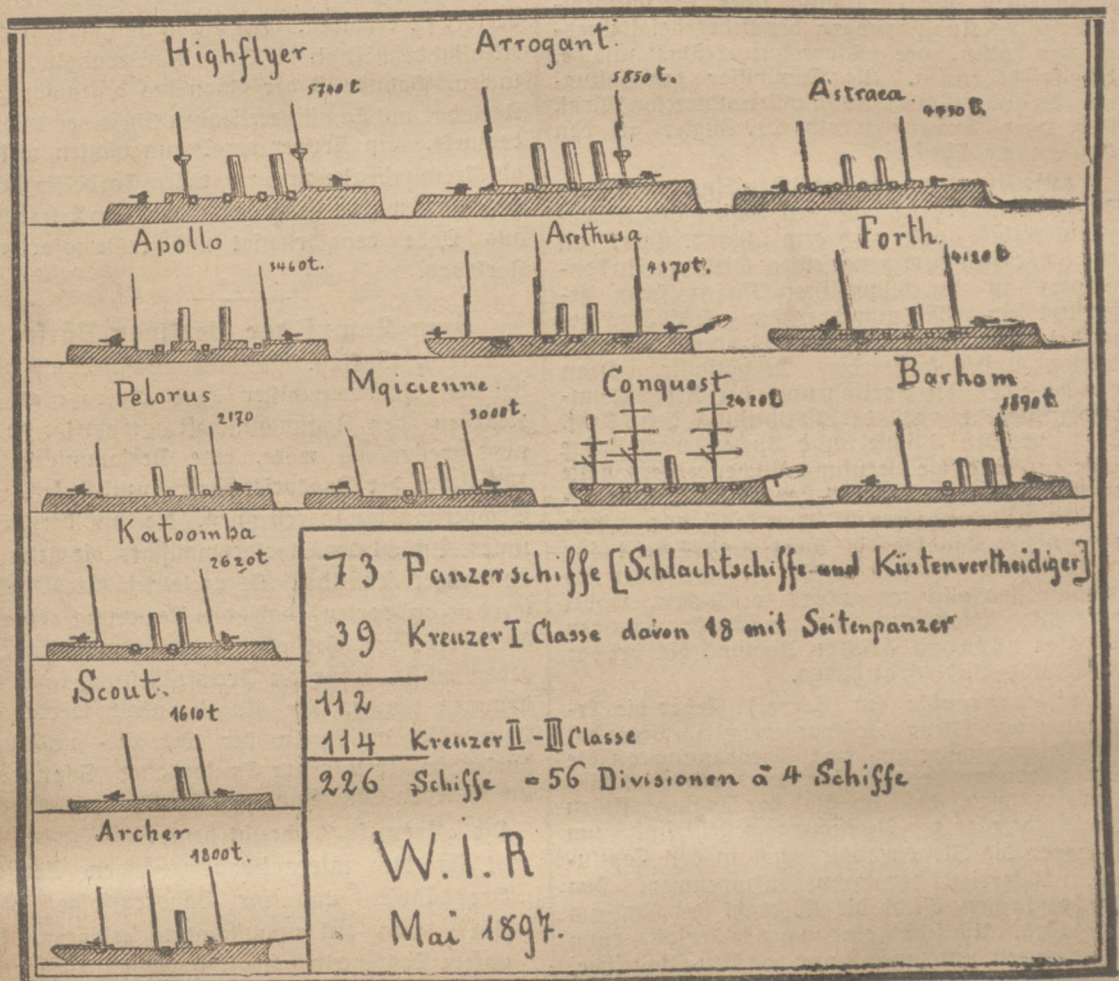 Highflyer
5740 t
Arrogant.
5850 t.
Astraea.
4450 t.
Apollo
3460t.
Arethusa
4370t.
Forth.
4120t
Pelorus
2170
Mgicienne
3000t
Conquest
2420t
Barham
1890t
Katoomba
2620t
Scout.
1610t
Archer
1800t.
73 Panzerschiffe [Schlachtschiffe und Küstenvertheidiger]
39 Kreuzer I Classe davon 18 mit Seitenpanzer
112
114 Kreuzer II - III Classe
226 Schiffe = 56 Divisionen à 4 Schiffe
W.I.R
Mai 1897.